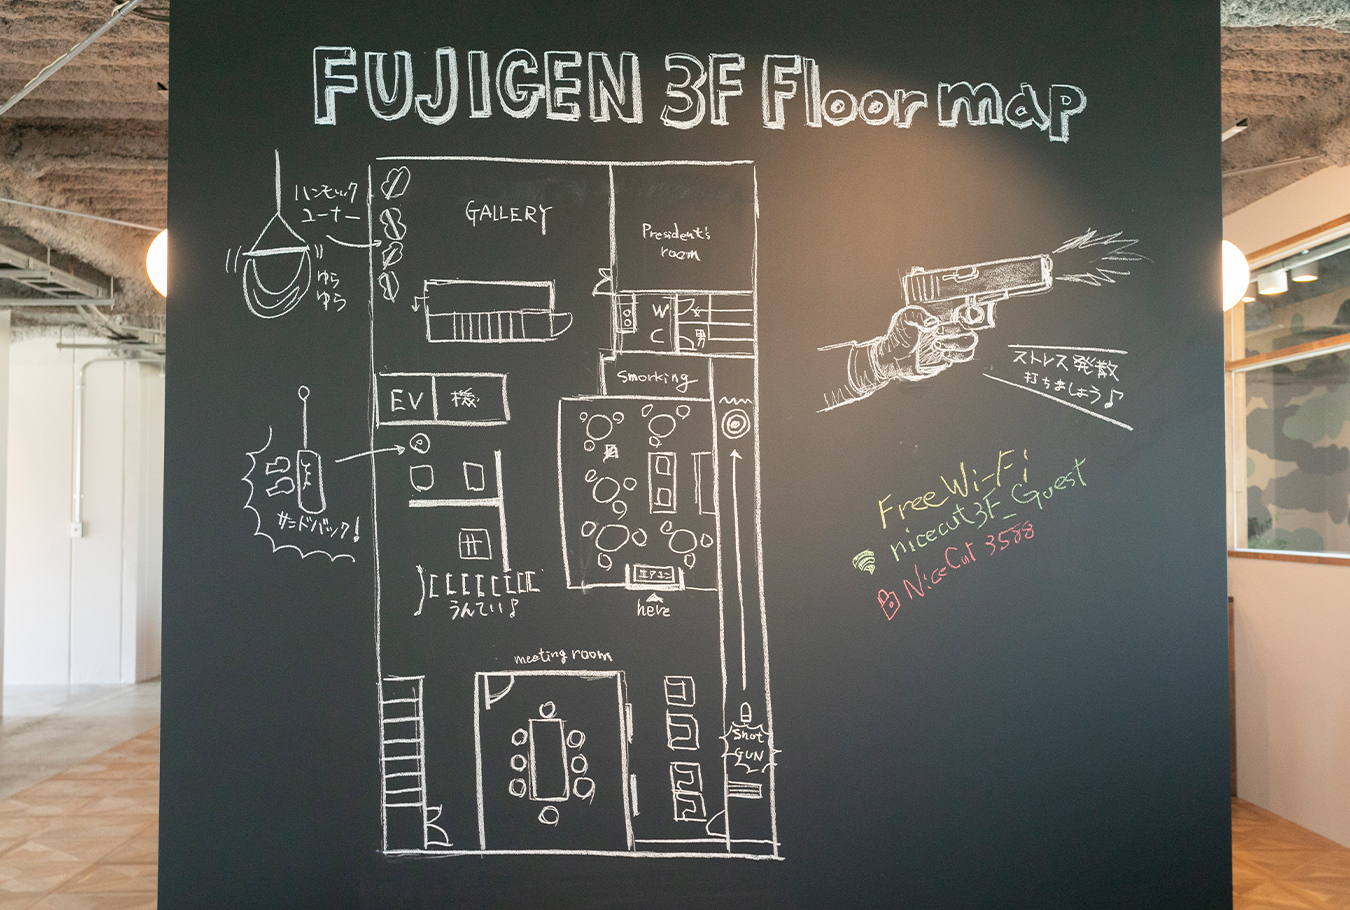 FUJIGEN 3F Floor map
ハンモック
コーナー
ゆら
ゆら
GALLERY
President's
room
W
C
女
男
Smorking
EV
機
サンドバック!
うんてい♪
エアコン
here
meeting room
Shot
GUN
ストレス発散
打ちましょう♪
Free Wi-Fi
nicecut3F_Guest
NiceCut 3588